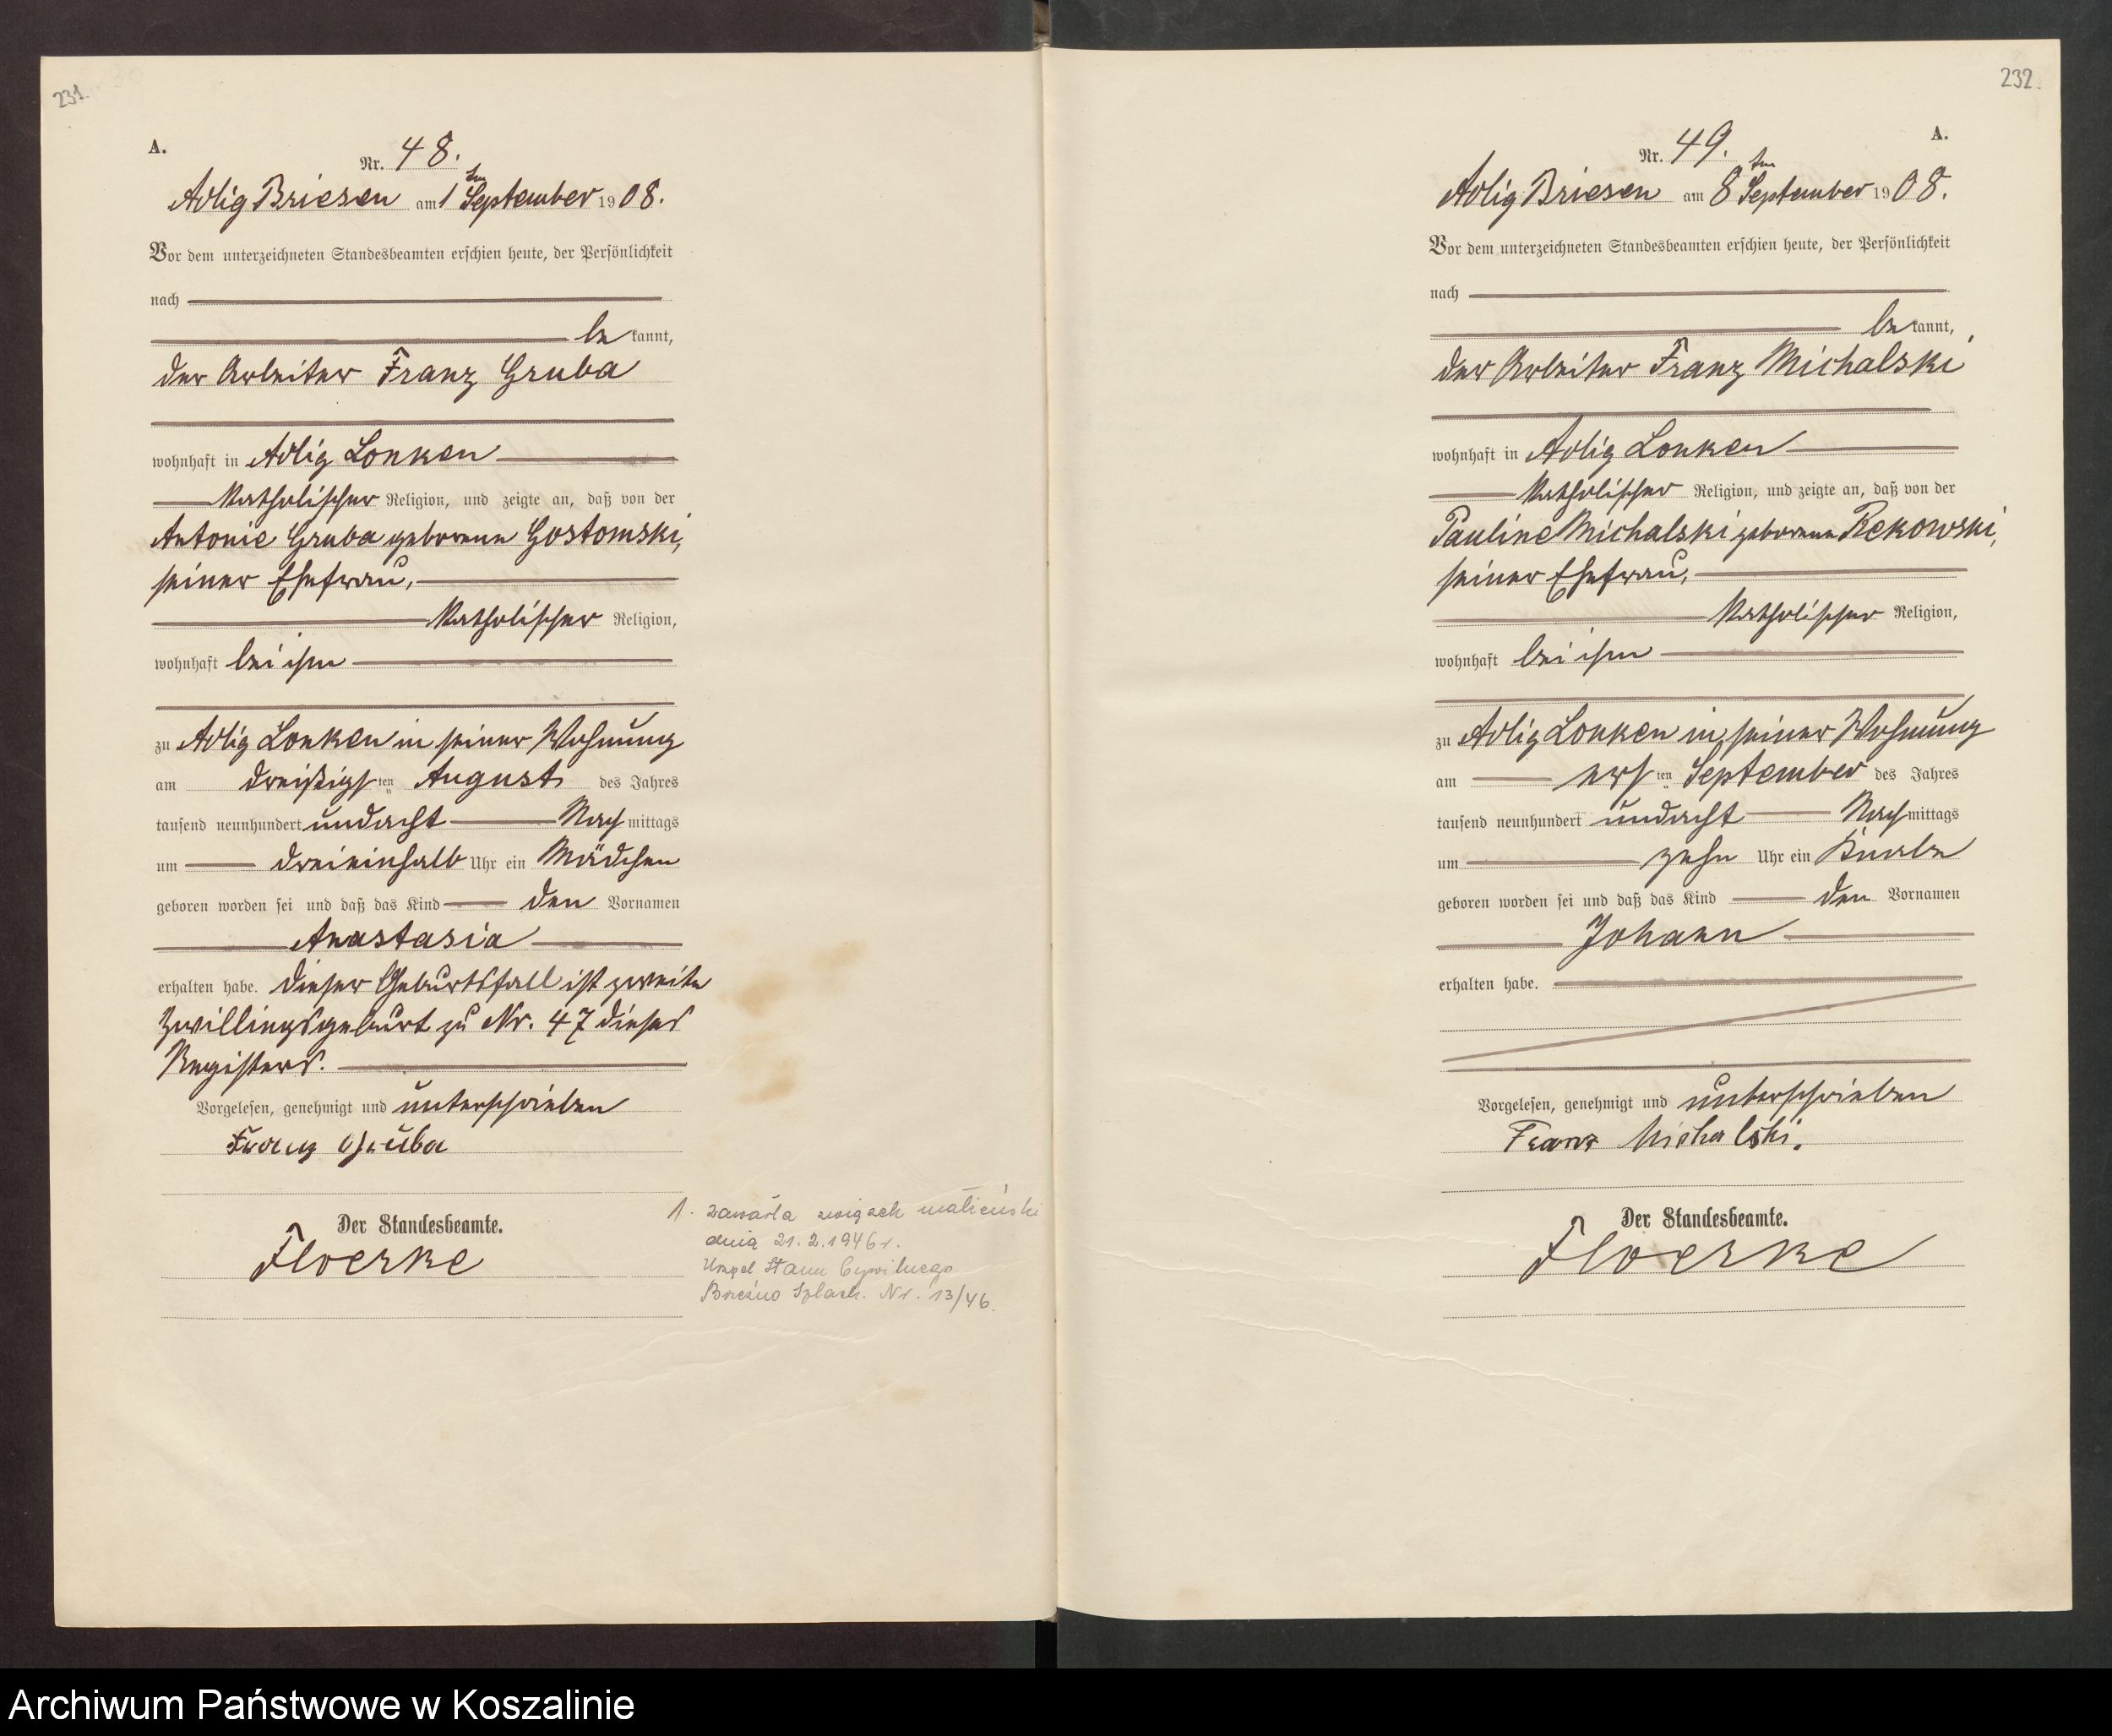 231.
A.
Nr. 48.
Adlig Briesen am 1ten September 1908.
Vor dem unterzeichneten Standesbeamten erschien heute, der Persönlichkeit
nach
be kannt,
der Arbeiter Franz Gruba
wohnhaft in Adlig Lonken
katholischer Religion, und zeigte an, daß von der
Antonie Gruba geborene Gostomski,
seiner Ehefrau,
katholischer Religion,
wohnhaft bei ihm
zu Adlig Lonken in seiner Wohnung
am dreißigsten August des Jahres
tausend neunhundert undacht Nachmittags
um dreieinhalb Uhr ein Mädchen
geboren worden sei und daß das Kind den Vornamen
Anastasia
erhalten habe. Dieser Geburtsfall ist zweite
Zwillingsgeburt zu Nr. 47 dieses
Registers.
Vorgelesen, genehmigt und unterschrieben
Franz Gruba
Der Standesbeamte.
Floerke
1. zawarła związek małżeński
dnia 21.2.1946 r.
Urząd Stanu Cywilnego
Brzeźno Szlach. Nr. 13/46.
232.
A.
Nr. 49.
Adlig Briesen am 8ten September 1908.
Vor dem unterzeichneten Standesbeamten erschien heute, der Persönlichkeit
nach
be kannt,
der Arbeiter Franz Michalski
wohnhaft in Adlig Lonken
katholischer Religion, und zeigte an, daß von der
Pauline Michalski geborene Rekowski,
seiner Ehefrau,
katholischer Religion,
wohnhaft bei ihm
zu Adlig Lonken in seiner Wohnung
am ersten September des Jahres
tausend neunhundert undacht Nachmittags
um zehn Uhr ein Knabe
geboren worden sei und daß das Kind den Vornamen
Johann
erhalten habe.
Vorgelesen, genehmigt und unterschrieben
Franz Michalski.
Der Standesbeamte.
Floerke
Archiwum Państwowe w Koszalinie